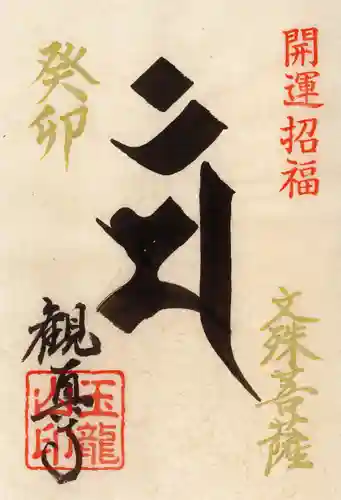 開運招福
文殊菩薩
𑖦𑖽
癸卯
観真
玉龍
山印